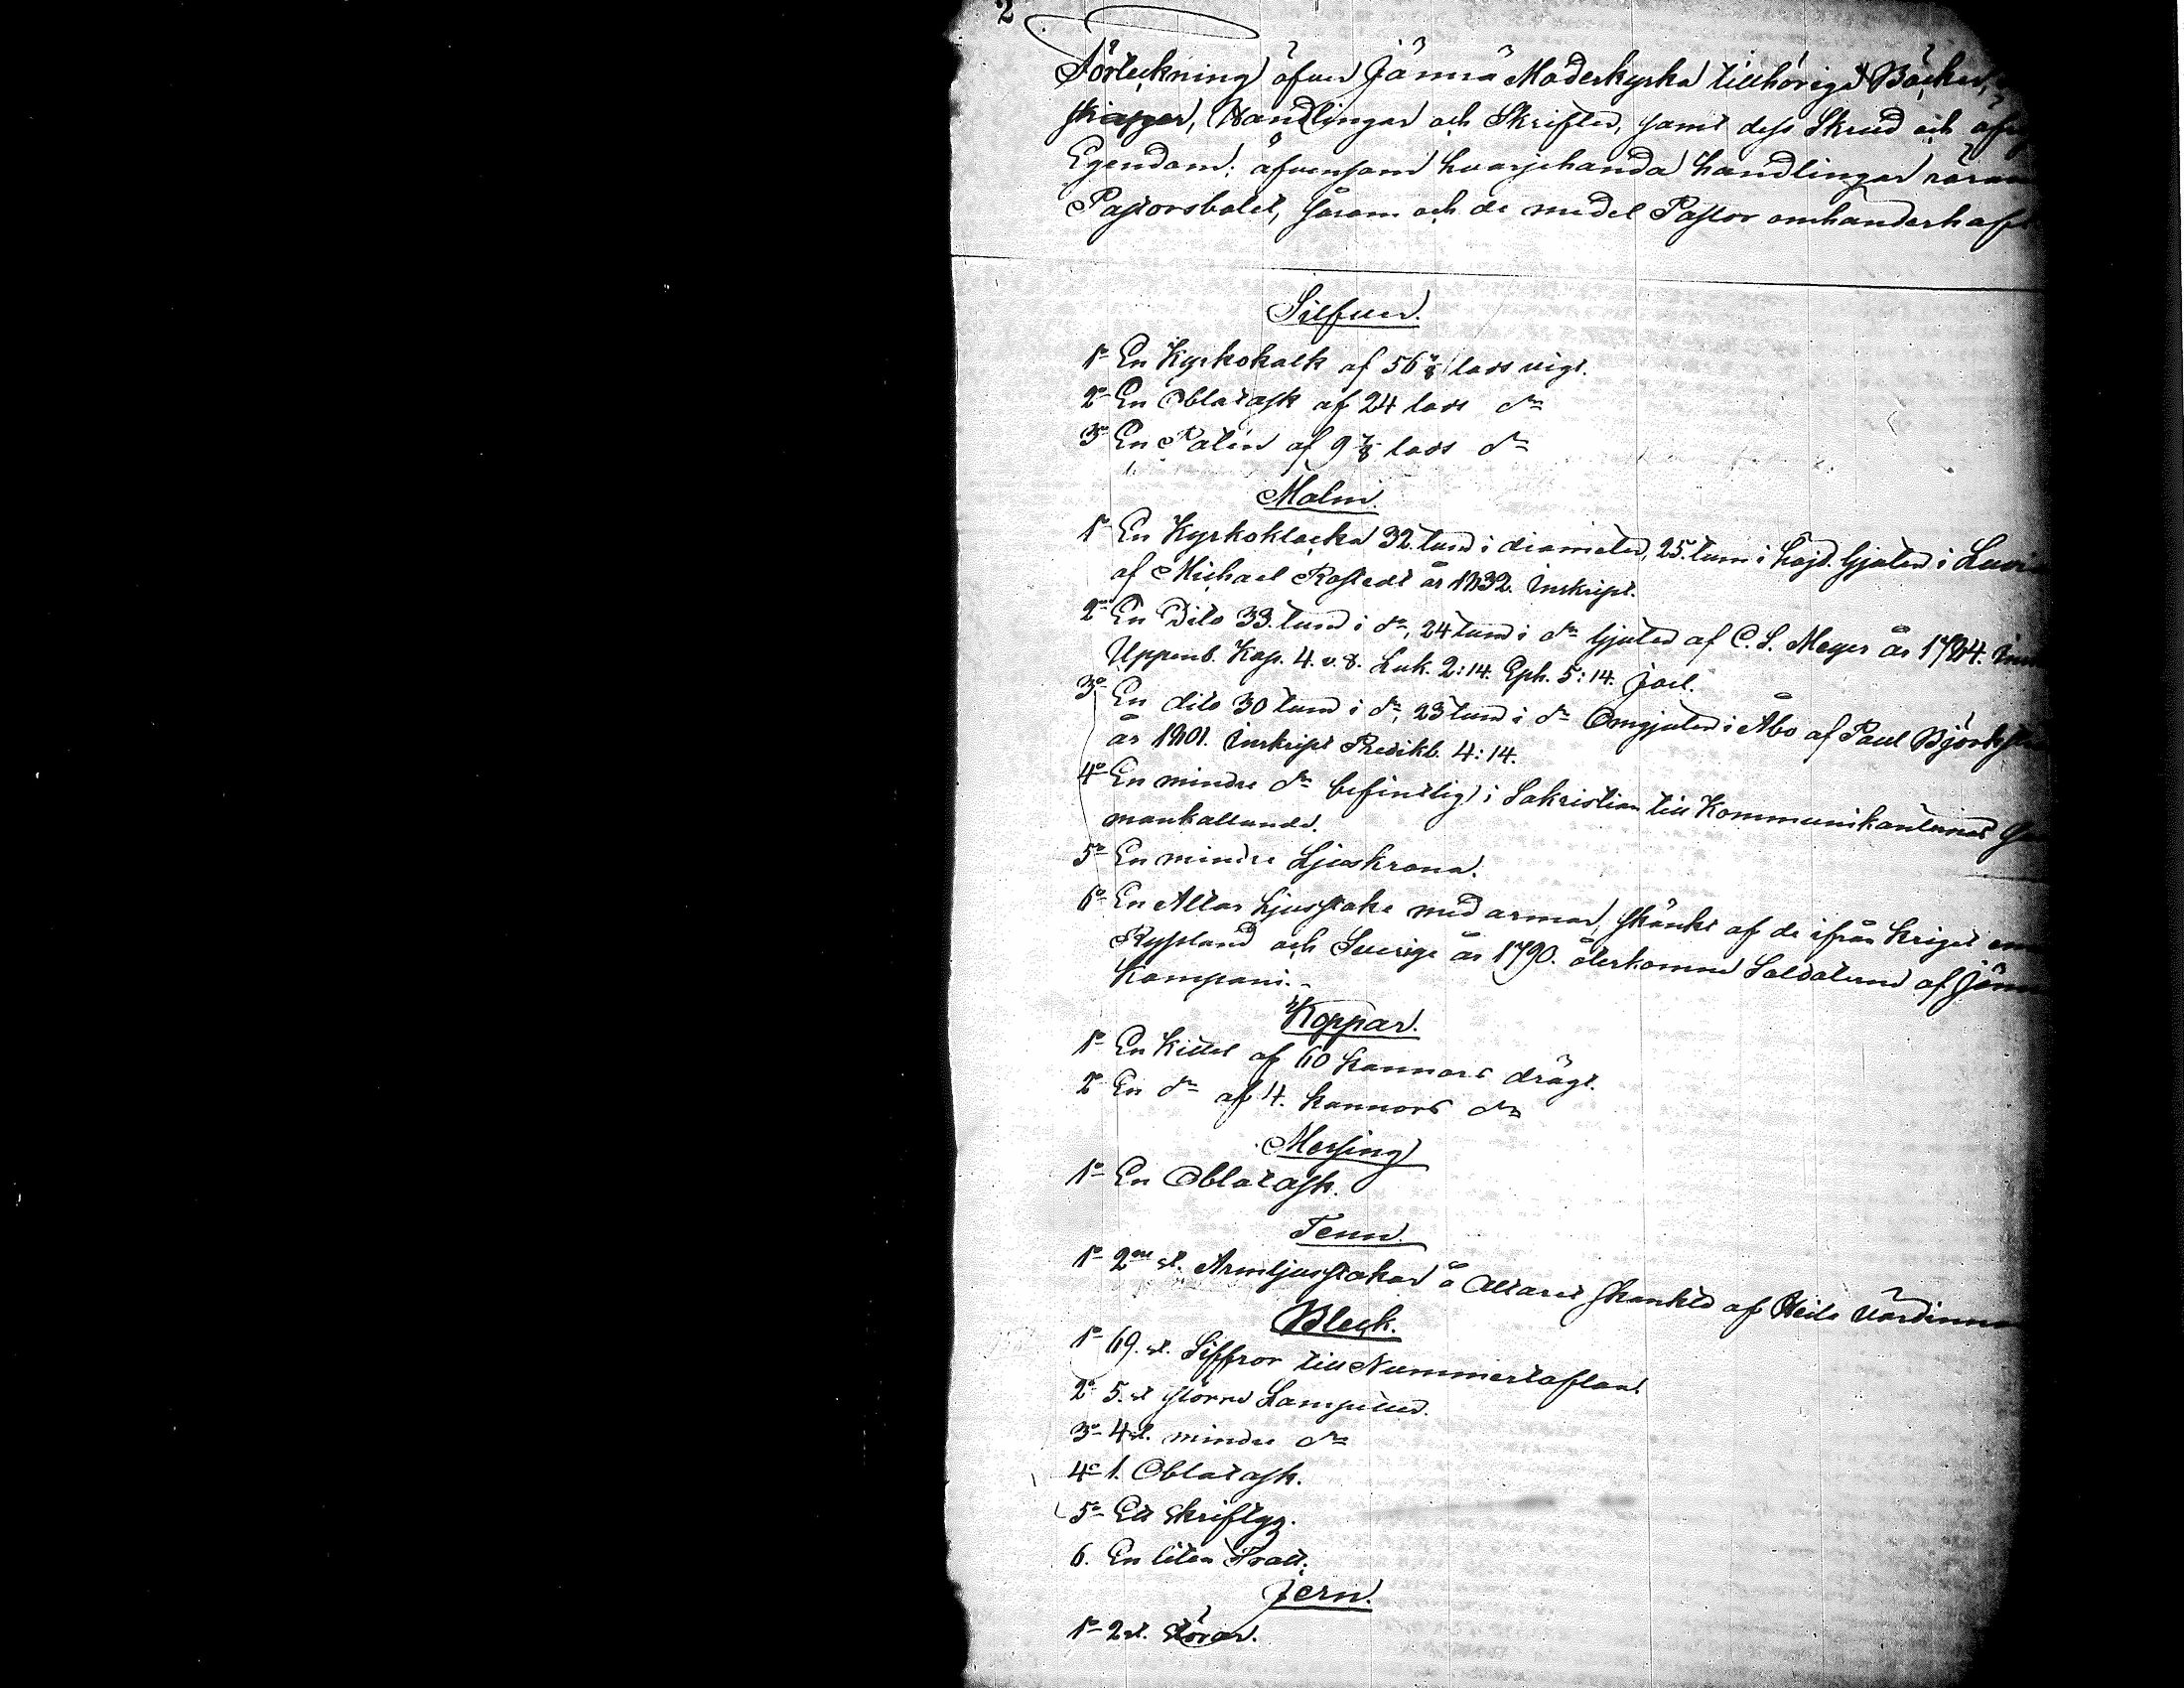 2
Förteckning öfver Jämsä Moderkyrka tillhöriga Böcker,
Handlingar och Skrifter, samt dess Skrud och öfrig
Egendom; äfvensom hvarjehanda handlingar röran
Pastorsbolet, såsom och de medel Pastor omhänderhaft
Silfver.
1o En Kyrkokalk af 56 7/8 lods vigt.
2o En Oblatask af 24 lods do
3o En Paten af 9 7/8 lods do
Malm.
1o En Kyrkoklocka 32. tum i diameter, 25. tum i höjd. Gjuten i Lovi
af Michael Rostedt år 1832. Inskript.
2o En Dito 33. tum i do, 24 tum i do Gjuten af C. S. Meyer år 1784. Ins
Uppenb. Kap. 4. v. 8. Luk. 2:14. Eph. 5:14. Joel.
3o En dito 30 tum i do, 23 tum i do Omgjuten i Åbo af Paul Björks
år 1801. Inskript Predikb. 4:14.
4o En mindre do befintlig i Sakristian till Kommunikanternas
mankallande.
5o En mindre Ljuskrona.
6o En Altar Ljusstake med armar, skänkt af de ifrån kriget em
Ryssland och Sverige år 1790. återkomne Soldaterne af Jäms
Kompani.
Koppar.
1o En Kittel af 60 kannors drägt.
2o En do af 4. kannors do
Messing
1o En Oblatask.
Tenn.
1o 2ne st. Armljusstakar å Altaret skänkte af Heile Värdinna
Bleck.
1o 69. st. Siffror till Nummertaflan.
2o 5. st större Lampetter.
3o 4 st. mindre do
4o 1. Oblatask.
5o Ett skriftyg.
6. En liten Tratt.
Jern.
1o 2 st. störar.